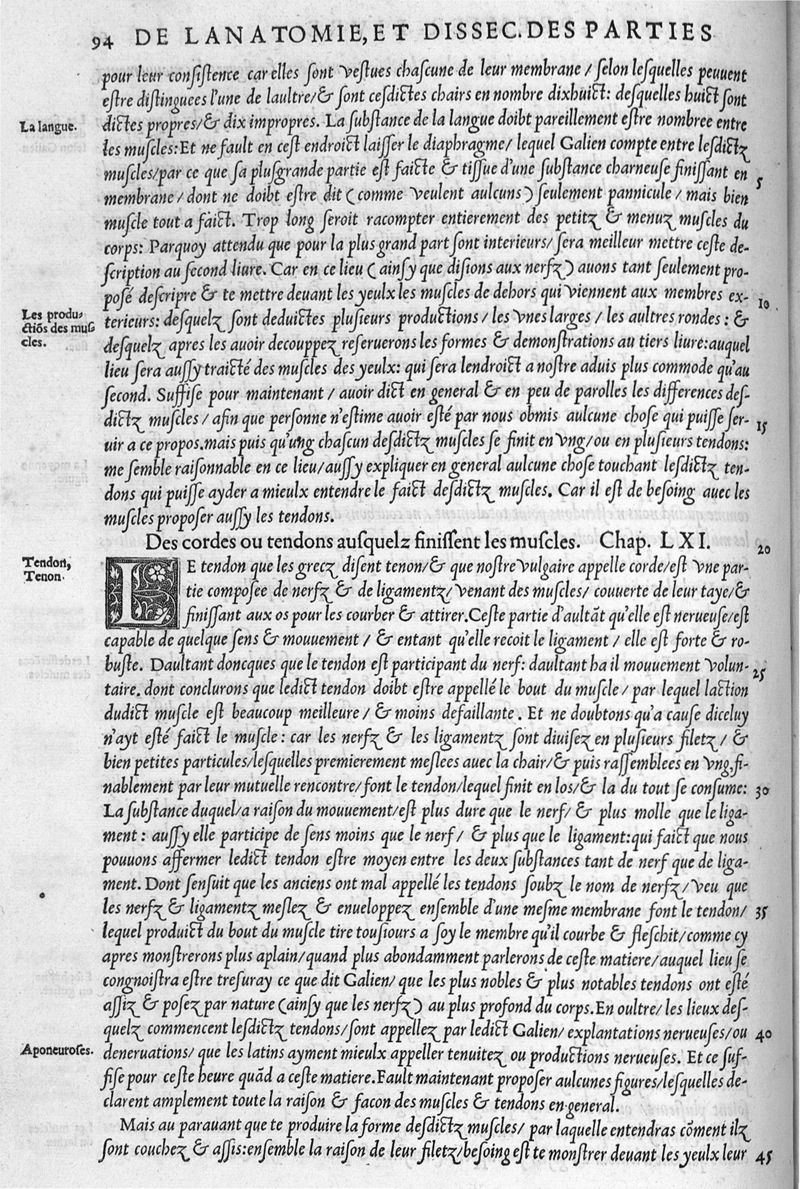 94 DE LANATOMIE, ET DISSEC. DES PARTIES
pour leur consistence car elles sont vestues chascune de leur membrane / selon lesquelles peuuent
estre distinguees l'une de laultre/ & sont cesdictes chairs en nombre dixhuict: desquelles huict sont
La langue.
dictes propres/ & dix impropres. La substance de la langue doibt pareillement estre nombree entre
les muscles: Et ne fault en cest endroict laisser le diaphragme/ lequel Galien compte entre lesdictz
muscles/par ce que sa plusgrande partie est faicte & tissue d'une substance charneuse finissant en
5
membrane / dont ne doibt estre dit (comme veulent aulcuns) seulement pannicule / mais bien
muscle tout a faict. Trop long seroit racompter entierement des petitz & menuz muscles du
corps: Parquoy attendu que pour la plus grand part sont interieurs/ sera meilleur mettre ceste de-
scription au second liure. Car en ce lieu (ainsy que disions aux nerfz) auons tant seulement pro-
posé descripre & te mettre deuant les yeulx les muscles de dehors qui viennent aux membres ex-
10
Les produ-
ctiõs des mus
cles.
terieurs: desquelz sont deduictes plusieurs productions / les vnes larges / les aultres rondes: &
desquelz apres les auoir decouppez reseruerons les formes & demonstrations au tiers liure: auquel
lieu sera aussy traicté des muscles des yeulx: qui sera lendroict a nostre aduis plus commode qu'au
second. Suffise pour maintenant / auoir dict en general & en peu de parolles les differences des-
dictz muscles / afin que personne n'estime auoir esté par nous obmis aulcune chose qui puisse ser-
15
uir a ce propos. mais puis qu'ung chascun desdictz muscles se finit en vng/ou en plusieurs tendons:
me semble raisonnable en ce lieu/aussy expliquer en general aulcune chose touchant lesdictz ten-
dons qui puisse ayder a mieulx entendre le faict desdictz muscles. Car il est de besoing auec les
muscles proposer aussy les tendons.
Des cordes ou tendons ausquelz finissent les muscles. Chap. LXI.
20
Tendon,
Tenon.
LE tendon que les grecz disent tenon/ & que nostre vulgaire appelle corde/est vne par-
tie composee de nerfz & de ligamentz/ venant des muscles/ couuerte de leur taye/ &
finissant aux os pour les courber & attirer. Ceste partie d'aultãt qu'elle est nerueuse/est
capable de quelque sens & mouuement / & entant qu'elle recoit le ligament / elle est forte & ro-
buste. Daultant doncques que le tendon est participant du nerf: daultant ha il mouuement volun-
25
taire. dont conclurons que ledict tendon doibt estre appellé le bout du muscle / par lequel laction
dudict muscle est beaucoup meilleure / & moins defaillante. Et ne doubtons qu'a cause diceluy
n'ayt esté faict le muscle: car les nerfz & les ligamentz sont diuisez en plusieurs filetz / &
bien petites particules/lesquelles premierement meslees auec la chair/ & puis rassemblees en vng, fi-
nablement par leur mutuelle rencontre/ font le tendon/lequel finit en los/ & la du tout se consume:
30
La substance duquel/a raison du mouuement/est plus dure que le nerf/ & plus molle que le liga-
ment: aussy elle participe de sens moins que le nerf / & plus que le ligament: qui faict que nous
pouuons affermer ledict tendon estre moyen entre les deux substances tant de nerf que de liga-
ment. Dont sensuit que les anciens ont mal appellé les tendons soubz le nom de nerfz/ veu que
les nerfz & ligamentz meslez & enueloppez ensemble d'une mesme membrane font le tendon/
35
lequel produict du bout du muscle tire tousiours a soy le membre qu'il courbe & fleschit/comme cy
apres monstrerons plus aplain/quand plus abondamment parlerons de ceste matiere/auquel lieu se
congnoistra estre tresuray ce que dit Galien/ que les plus nobles & plus notables tendons ont esté
assiz & posez par nature (ainsy que les nerfz) au plus profond du corps. En oultre/ les lieux des-
quelz commencent lesdictz tendons/sont appellez par ledict Galien/ explantations nerueuses/ou
40
Aponeuroses.
deneruations/ que les latins ayment mieulx appeller tenuitez ou productions nerueuses. Et ce suf-
fise pour ceste heure quãd a ceste matiere. Fault maintenant proposer aulcunes figures/lesquelles de-
clarent amplement toute la raison & facon des muscles & tendons en general.
Mais au parauant que te produire la forme desdictz muscles/ par laquelle entendras cõment ilz
sont couchez & assis: ensemble la raison de leur filetz/besoing est te monstrer deuant les yeulx leur
45